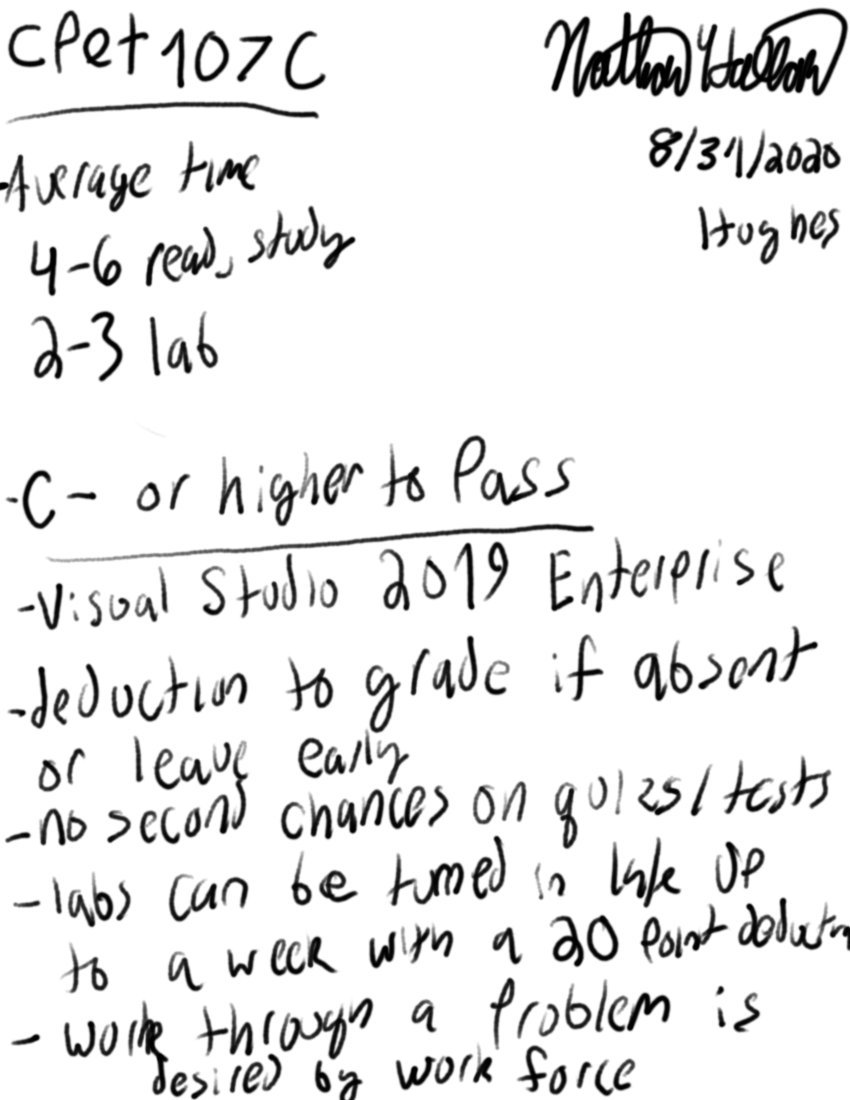 CPet 107C
8/31/2020
Hughes
-Average time
4-6 read, study
2-3 lab
-C- or higher to Pass
-Visual Studio 2019 Enterprise
-deduction to grade if absent
or leave early
-no second chances on quizs/tests
-labs can be turned in late UP
to a week with a 20 Point deductn
- work through a Problem is
desired by work force